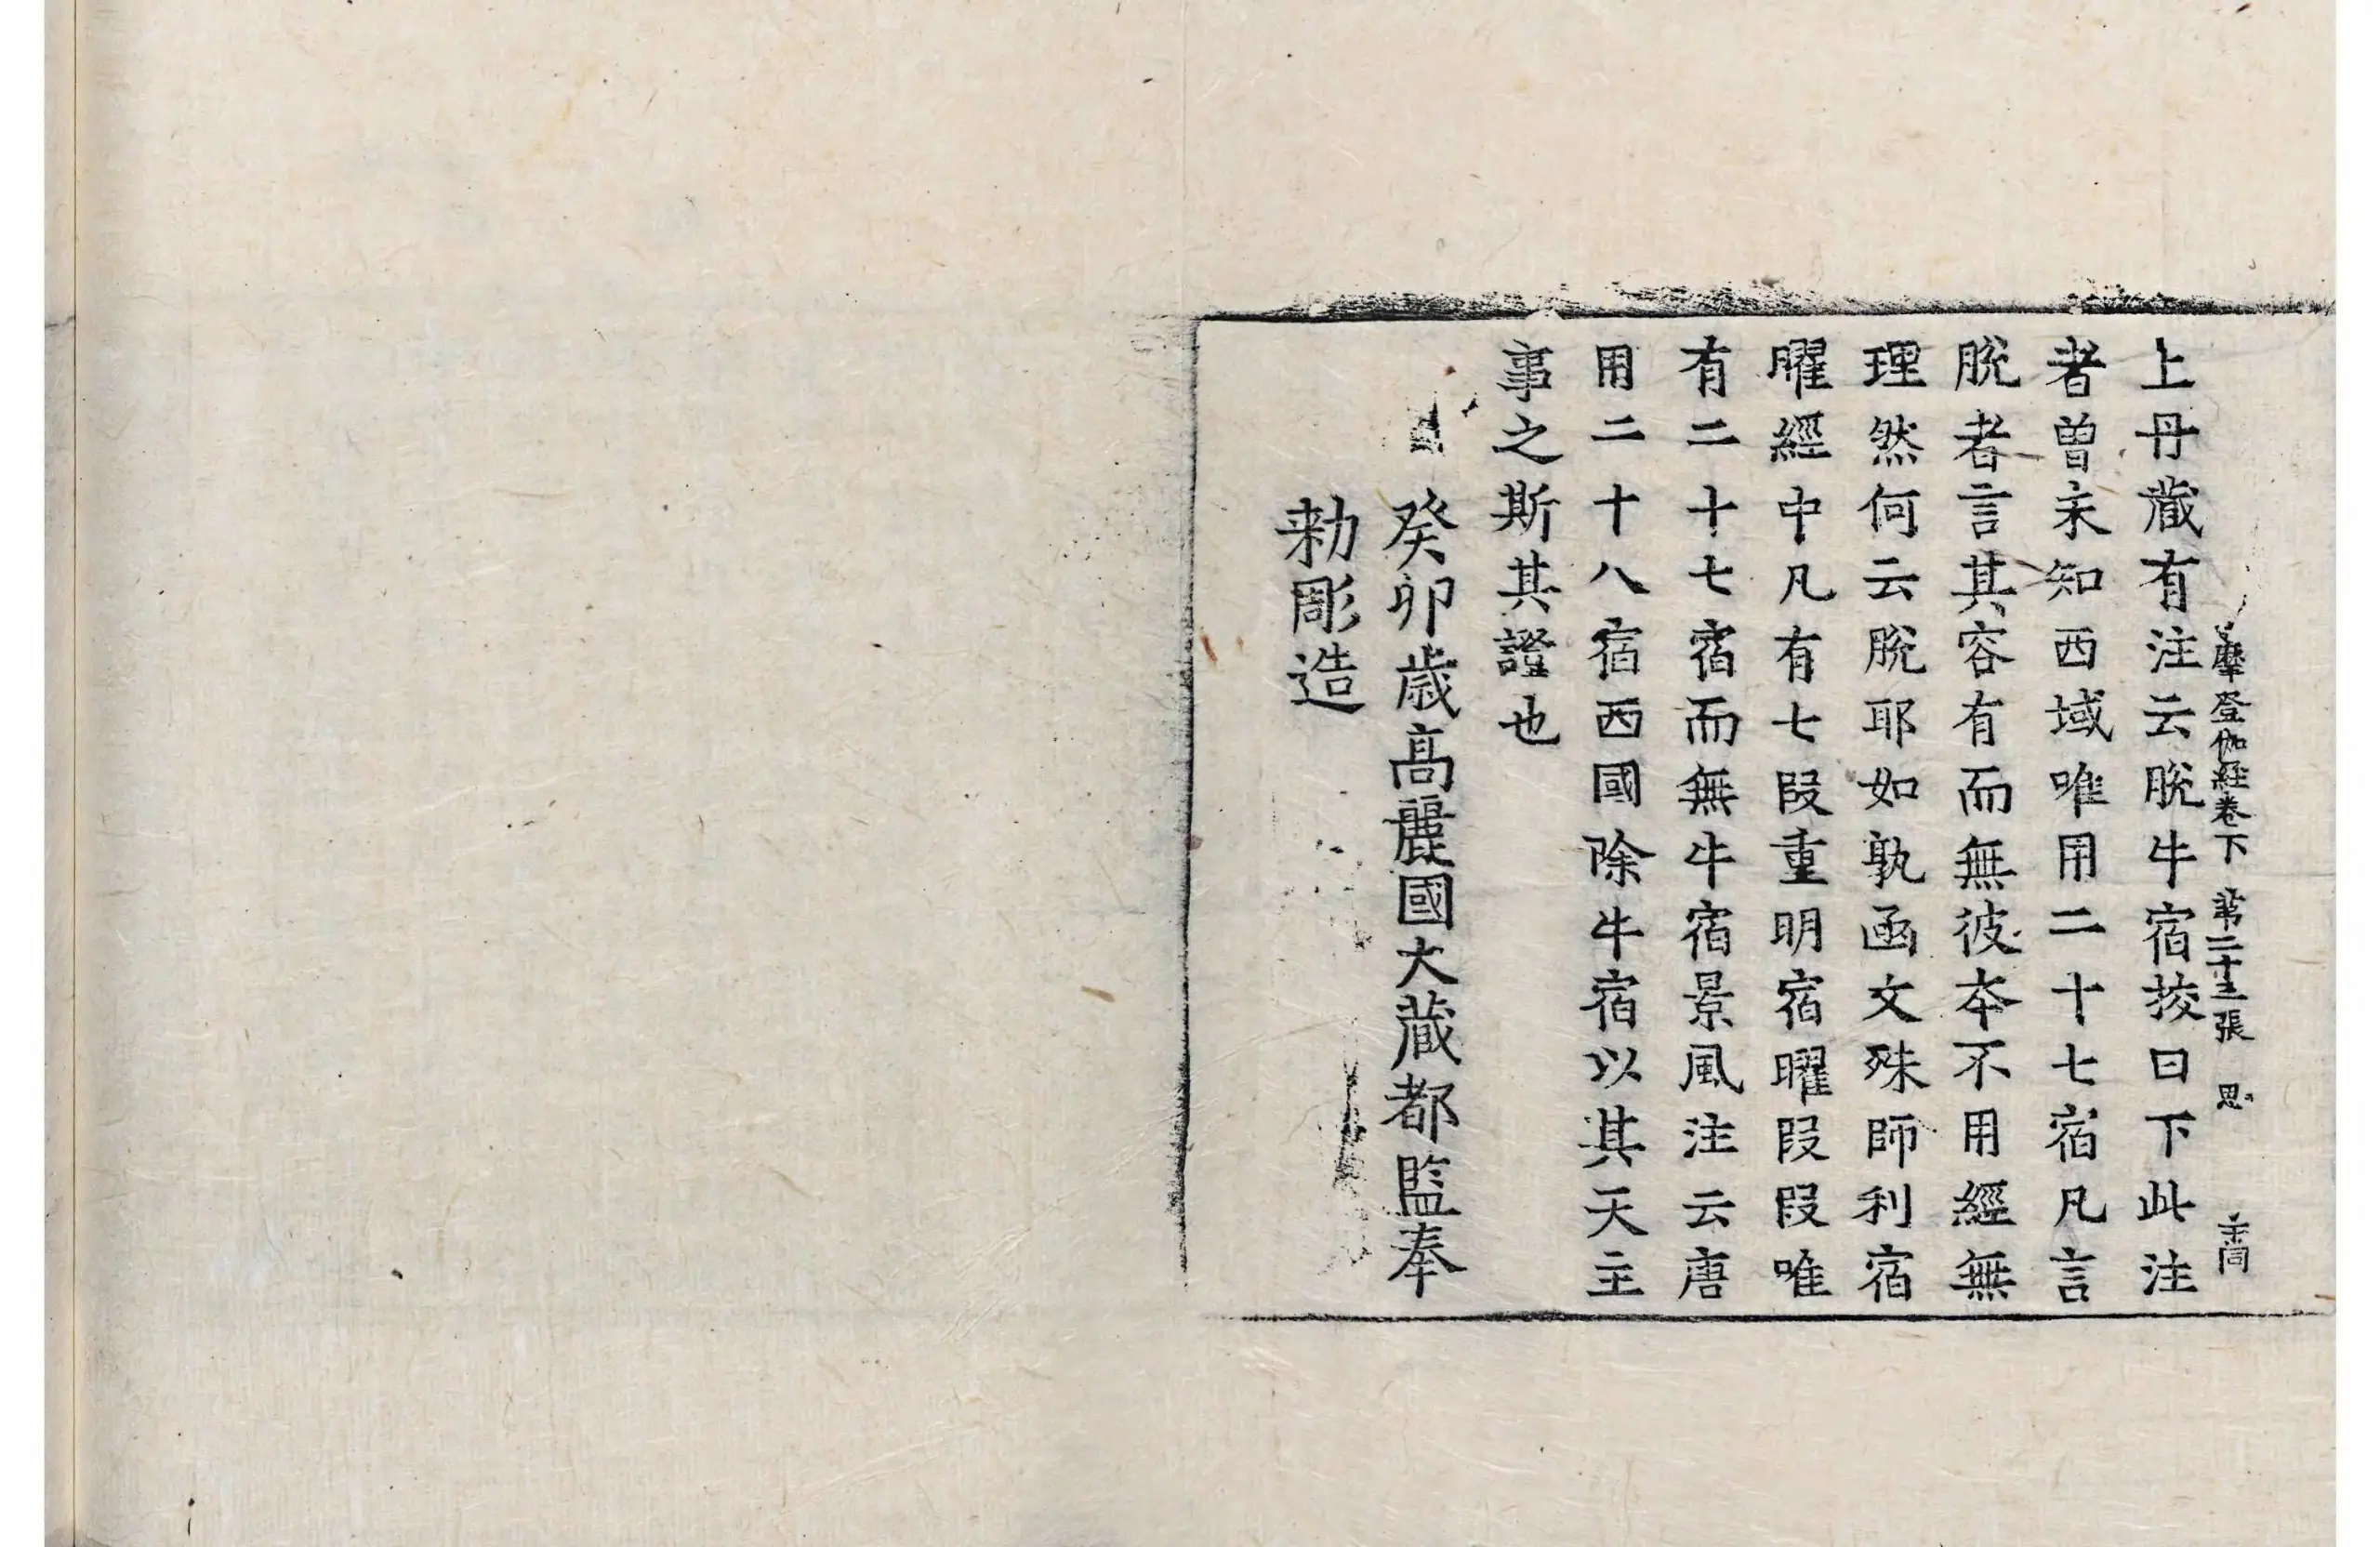 摩登伽經卷下 第二十三張 思
上丹藏有注云脫牛宿挍曰下此注
者曾未知西域唯用二十七宿凡言
脫者言其容有而無彼本不用經無
理然何云脫耶如孰函文殊師利宿
曜經中凡有七段重明宿曜段段唯
有二十七宿而無牛宿景風注云唐
用二十八宿西國除牛宿以其天主
事之斯其證也
癸卯歲高麗國大藏都監奉
勑彫造